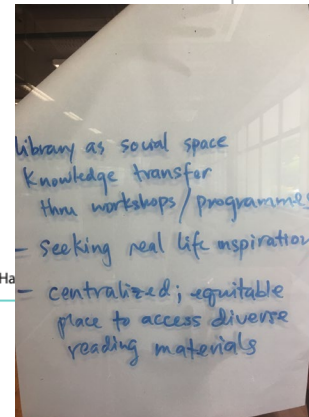 Library as social space
Knowledge transfer
thru workshops/programmes
- Seeking real life inspiration
Ha
- centralized; equitable
place to access diverse
reading materials